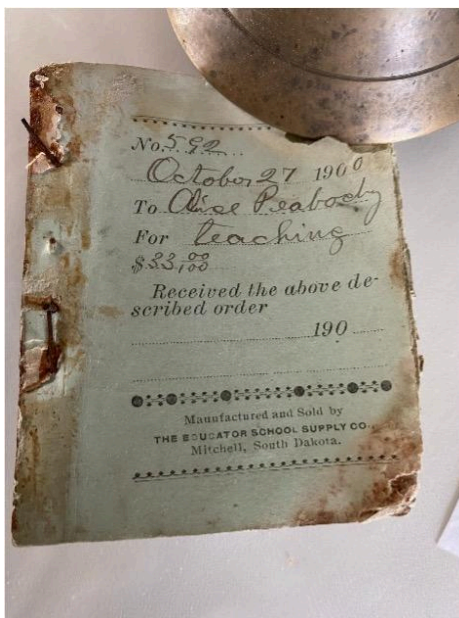 No. 592
October 27 1900
To Alise Peabody
For teaching
$ 33,00
Received the above de-
scribed order
190
Manufactured and Sold by
THE EDUCATOR SCHOOL SUPPLY CO.
Mitchell, South Dakota.